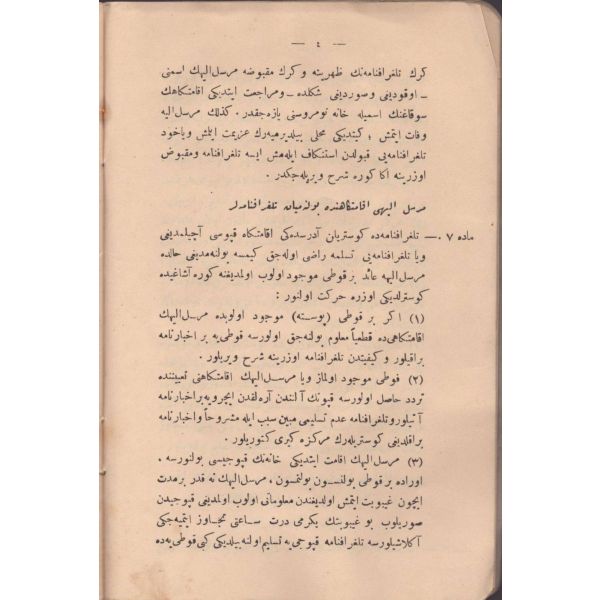 — ٤ —
كرك تلغرافنامه‌نك ظهرينه و كرك مقبوضه مرسل اليهك اسمنى
ـ اوقوديغى و صورديغى شكلده ـ و مراجعت ايتديكى اقامتكاهك
سوقاغنك اسميله خانه نومروسنى يازه‌جقدر. كذلك مرسل اليه
وفات ايتمش ؛ كيتديكى محلى بيلديرميه‌رك عزيمت ايتمش وياخود
تلغرافنامه‌يى قبولدن استنكاف ايله‌مش ايسه تلغرافنامه و مقبوض
اوزرينه اكا كوره شرح ويريله‌جكدر .
مرسل اليهى اقامتكاهنده بولنه‌ميان تلغرافنامه‌لر
ماده ٧ .— تلغرافنامه‌ده كوستريلن آدرسده‌كى اقامتكاه قپوسى آچيلمديغى
ويا تلغرافنامه‌يى تسلمه راضى اوله‌جق كيمسه بولنه‌مديغى حالده
مرسل اليهه عائد بر قوطى موجود اولوب اولمديغنه كوره آشاغيده
كوسترلديكى اوزره حركت اولنور :
(١) اكر بر قوطى (پوسته) موجود اولوبده مرسل اليهك
اقامتكاهى ده قطعياً معلوم بولنه‌جق اولورسه قوطى‌يه بر اخبارنامه
براقيلور و كيفيتدن تلغرافنامه اوزرينه شرح ويريلور .
(٢) قوطى موجود اولماز ويا مرسل اليهك اقامتكاهنى تعييننده
تردد حاصل اولورسه قپونك آلتندن آره‌لقدن ايچرويه بر اخبارنامه
آتيلور و تلغرافنامه عدم تسليمى مبين سبب ايله مشروحاً و اخبارنامه
براقلديغى كوستريله‌رك مركزه كيرى كتوريلور .
(٣) مرسل اليهك اقامت ايتديكى خانه‌نك قپوجيسى بولنورسه ،
اوراده بر قوطى بولنسون بولنمسون ، مرسل اليهك نه قدر بر مدت
ايچون غيبوبت ايتمش اولديغندن معلوماتى اولوب اولمديغى قپوجيدن
صوريلوب بو غيبوبتك يكرمى درت ساعتى متجاوز ايتميه‌جكى
آكلاشيلورسه تلغرافنامه قپوجى‌يه تسليم اولنه‌بيلديكى كبى قوطى‌يه ده